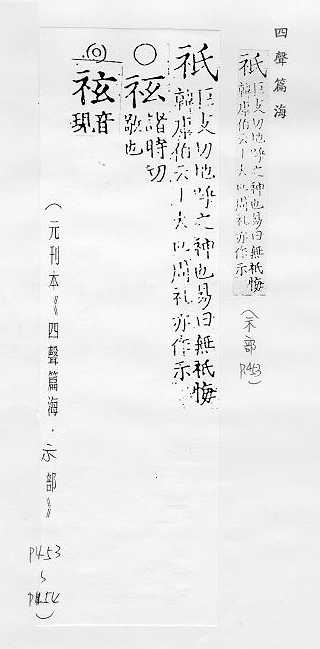 四聲篇海
祇 巨支切地𠰥之神也易曰無祇悔
韓康伯云丨大以周礼亦作示
(示部 P453)
祇 巨支切地𠰥之神也易曰無祇悔
韓康伯云丨大以周礼亦作示
○
䄎 諧時切
敬也
◎
䄕 音
現
(元刊本《四聲篇海·示部》 P453
P454)